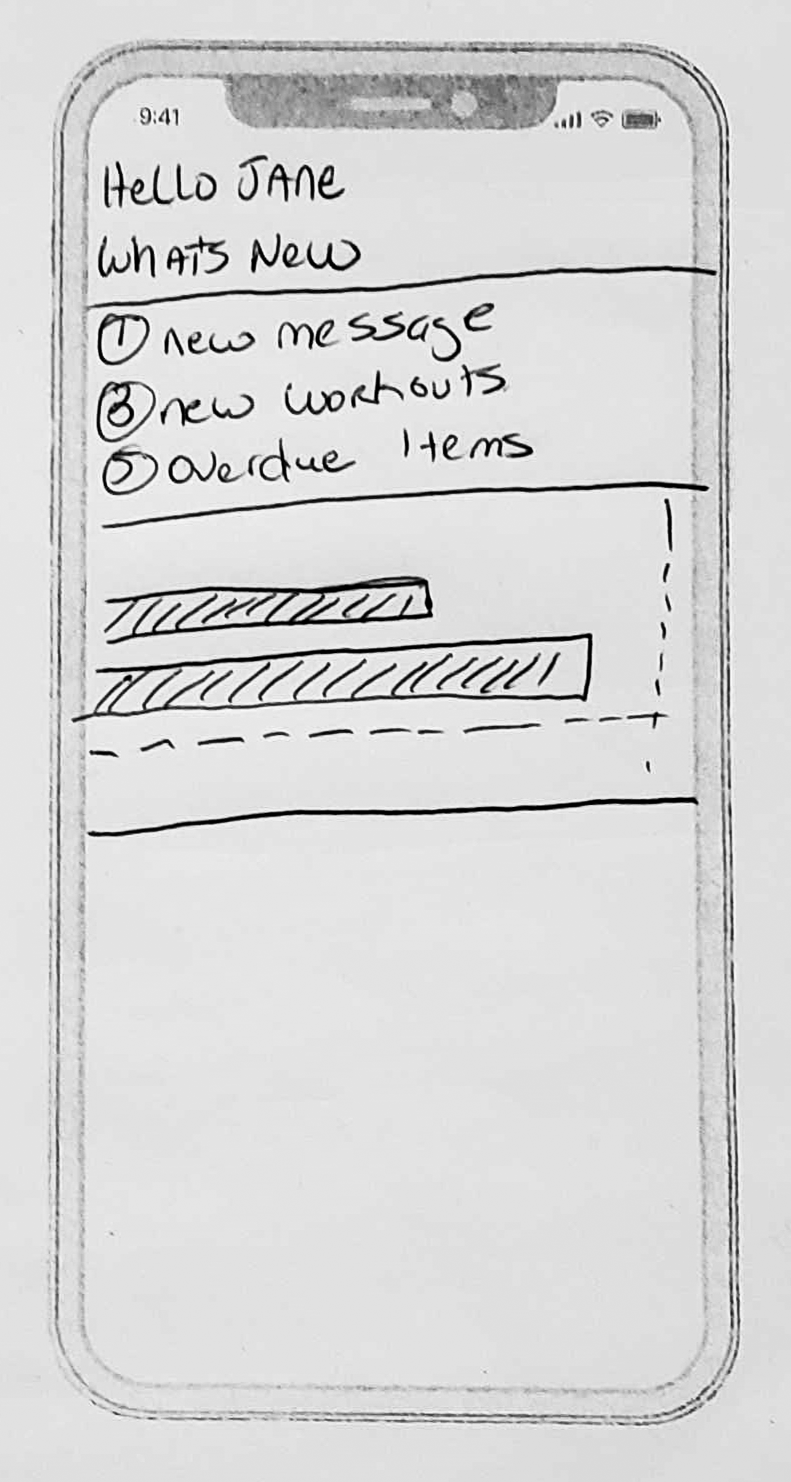 9:41
Hello JAne
WhATs New
① new message
③ new workouts
⑤ overdue Items